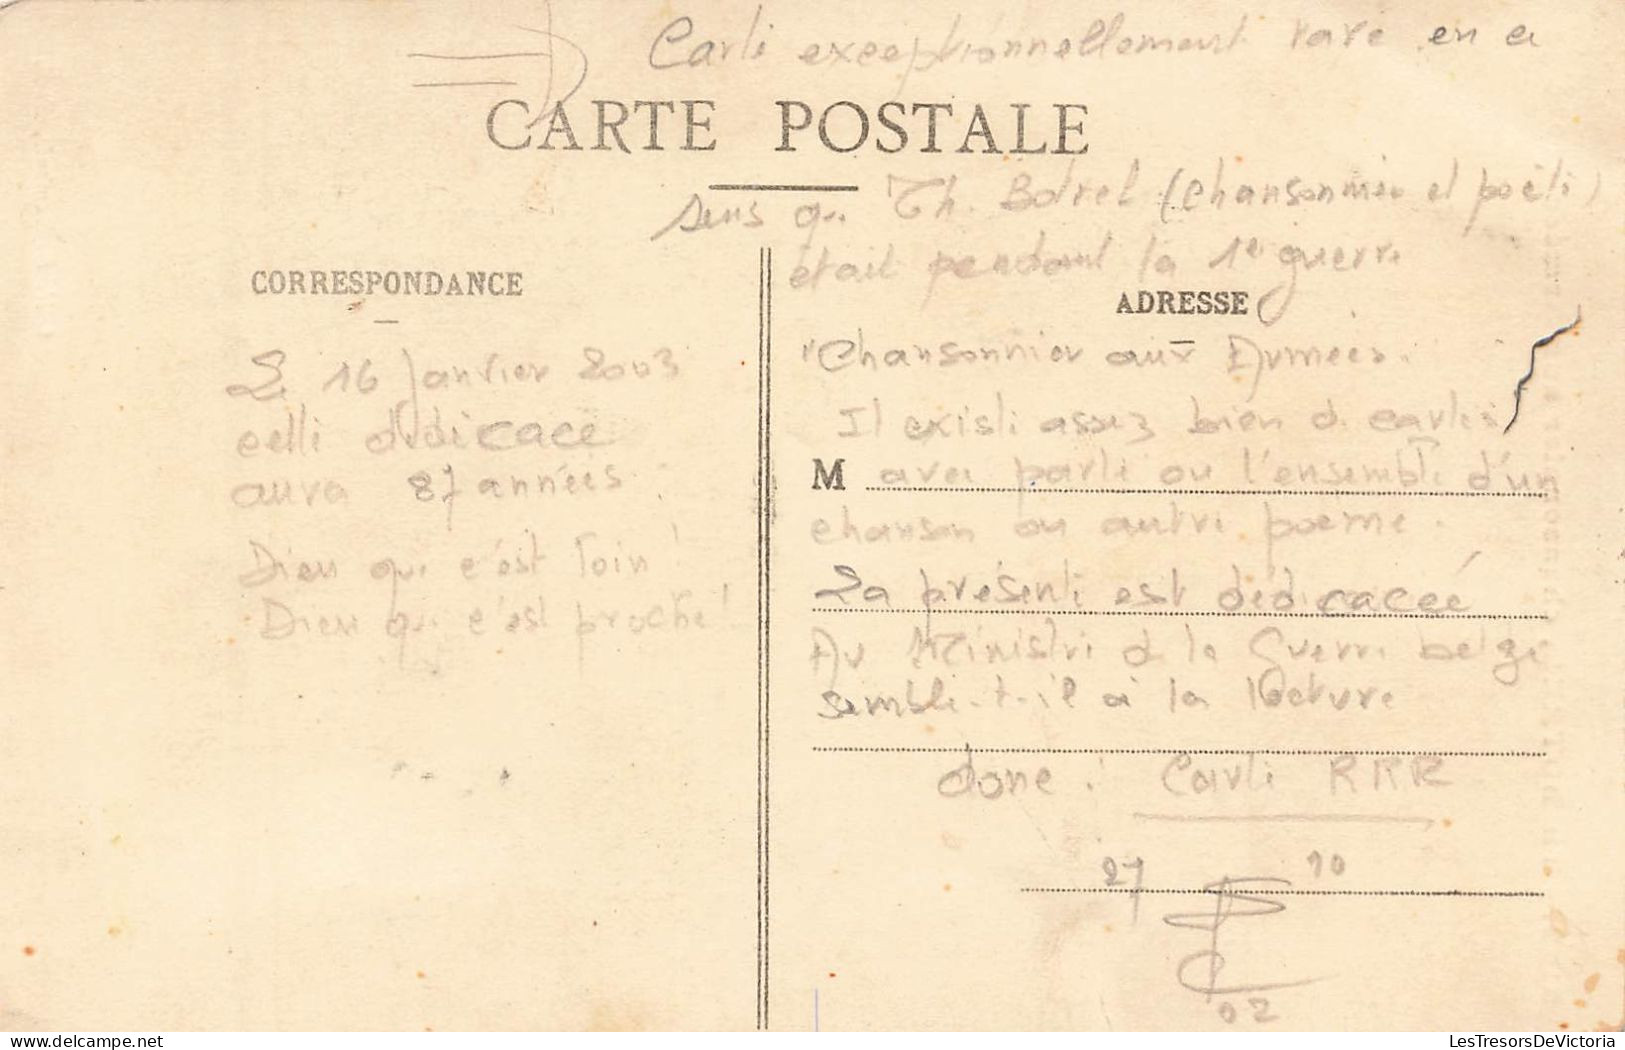 Carte exceptionnellement rare en ce
CARTE POSTALE
sens que Th. Botrel (chansonnier et poète)
était pendant la 1e guerre
CORRESPONDANCE
ADRESSE
"Chansonnier aux Armées.
Le 16 Janvier 2003
Il existe assez bien de cartes
cette dédicace
M avec partie ou l'ensemble d'un
aura 87 années.
chanson ou autre poème.
Dieu que c'est loin!
La présente est dédicacée
Dieu que c'est proche!
Au Ministre de la Guerre belge
semble-t-il à la lecture
donc: Carte RRR
27 10
02
LesTresorsDeVictoria